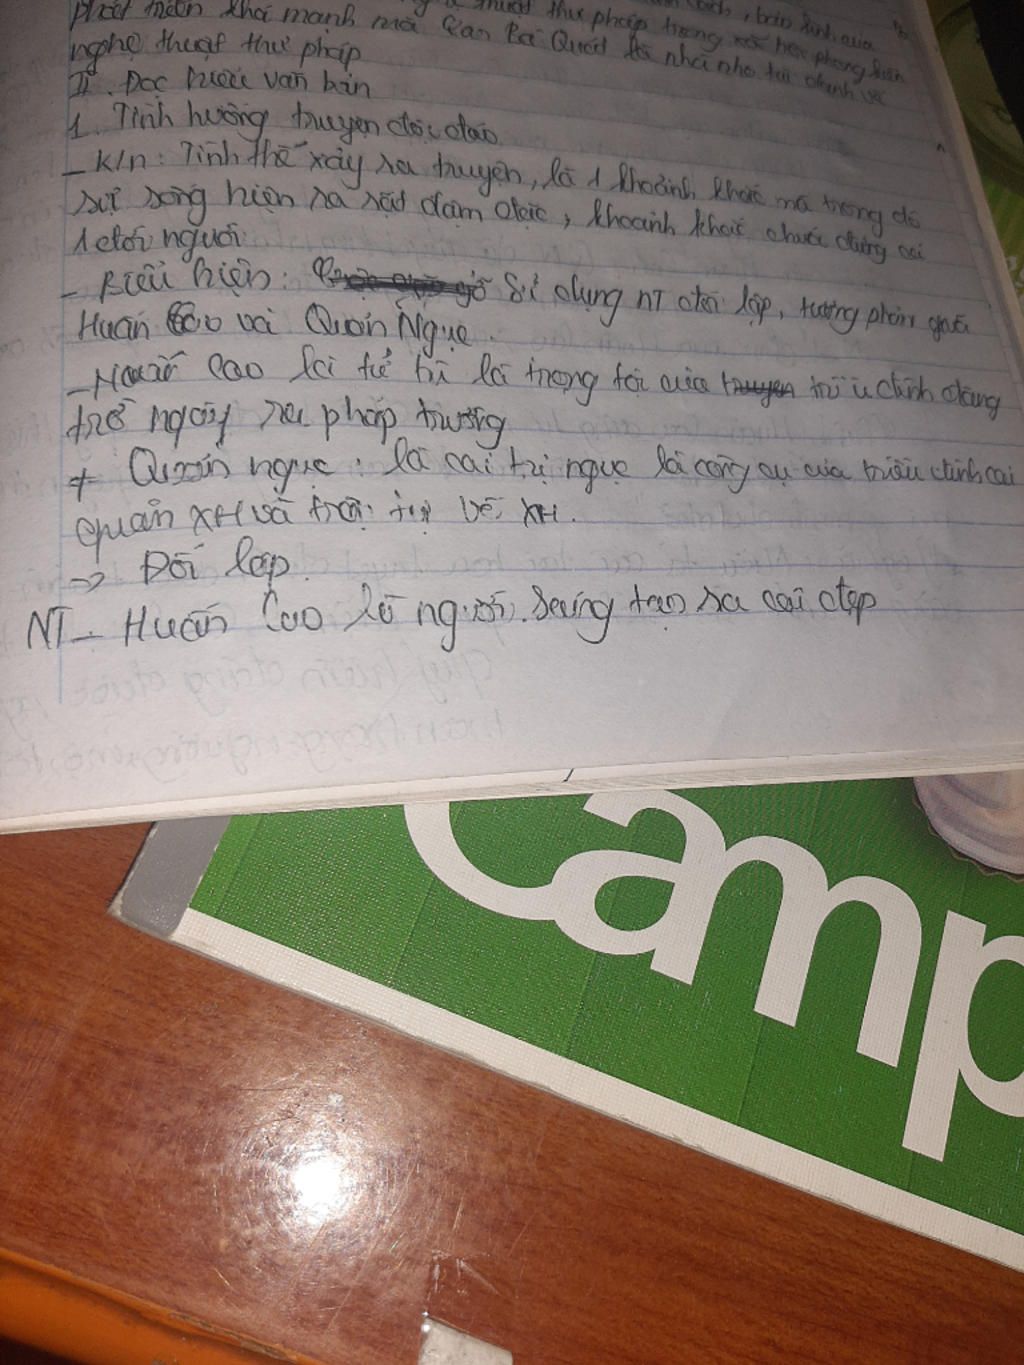 phát triển khá mạnh mà Cao Bá Quát là nhà nho tài danh về
nghệ thuật thư pháp
II. Đọc hiểu văn bản
1. Tình huống truyện độc đáo
- K/n: Tình thế xảy ra truyện, là 1 khoảnh khắc mà trong đó
sự sống hiện ra rất đậm đặc, khoảnh khắc chứa đựng cả
1 đời người
- Biểu hiện: Sử dụng NT đối lập, tương phản giữa
Huấn Cao và Quản Ngục.
- Huấn Cao là tử tù là trọng tội của triều đình đang
trở ngày ra pháp trường
+ Quản ngục: là cai tị ngục là công cụ của triều đình cai
quản XH và trật tự về XH.
=> Đối lập.
NT - Huấn Cao là người sáng tạo ra cái đẹp
Camp